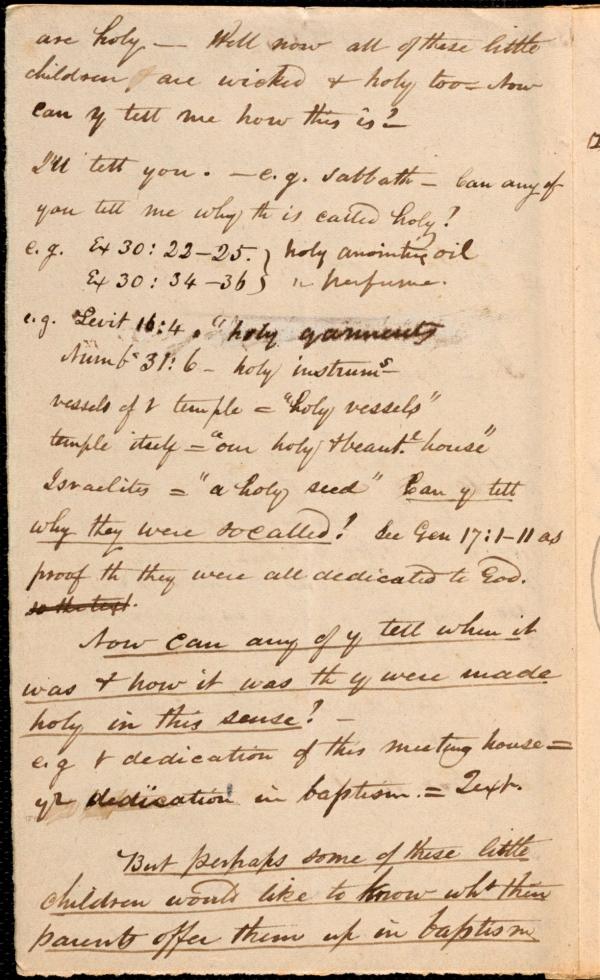 are holy — Well now all of these little
children are wicked & holy too = Now
can y tell me how this is? –
I'll tell you. — e.g. Sabbath – Can any of
you tell me why th is called holy?
e.g. Ex 30: 22–25. } holy anointing oil
Ex 30: 34–36 } " perfume.
e.g. Levit 16:4. "holy garments
Numbs 31: 6 – holy instrums –
vessels of t temple = "holy vessels"
temple itself = "our holy & beaut.l house"
Israelites = "a holy seed" Can y tell
why they were so called? See Gen 17: 1–11 as
proof th they were all dedicated to God.
so the text.
Now can any of y tell when it
was & how it was th y were made
holy in this sense? –
e.g t dedication of this meeting house =
yr dedication in baptism. = Text.
But perhaps some of these little
children would like to know wht their
parents offer them up in baptism